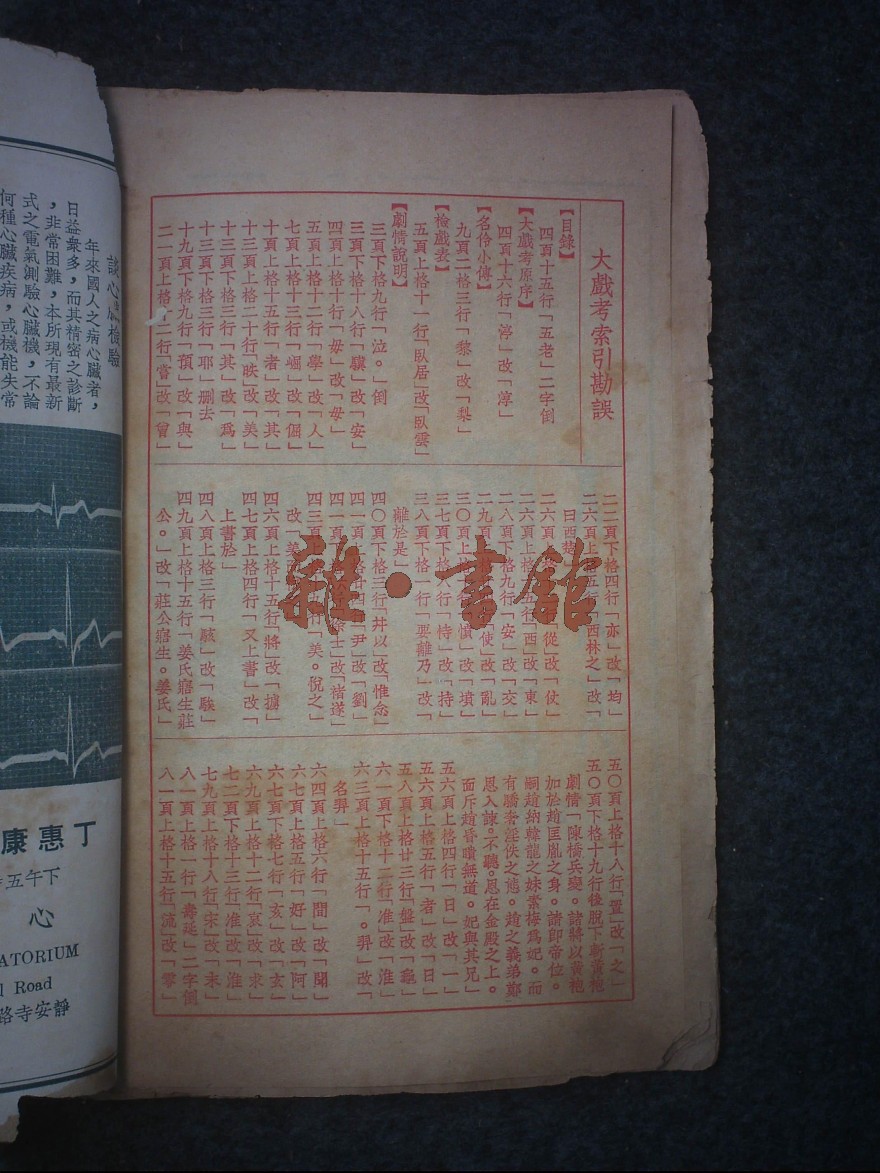 大戲考索引勘誤
【目錄】
四頁十五行「五老」二字倒
【大戲考原序】
四頁十六行「渟」改「淳」
【名伶小傳】
九頁二格三行「黎」改「梨」
【檢戲表】
五頁上格十一行「臥居」改「臥雲」
【劇情說明】
三頁下格九行「泣。」倒
三頁下格十八行「驥」改「安」
四頁上格十行「毋」改「母」
五頁上格十二行「學」改「人」
七頁上格十三行「崛」改「倔」
十頁上格十五行「者」改「其」
十三頁上格二十行「映」改「美」
十三頁下格三行「其」改「爲」
十三頁下格三行「耶」刪去
十九頁下格九行「預」改「與」
二一頁上格 二行「嘗」改「曾」
二二頁下格四行「亦」改「均」
二六頁上格五行「西林之」改「
曰西楚
二六頁 「從」改「仗」
二六頁上 行「西」改「東」
二八頁下格九行「安」改「交」
二九頁 「使」改「亂」
三〇頁上 「憤」改「墳」
三七頁下格 行「恃」改「持」
三八頁下格一行「要離乃」改「
離於是」
四〇頁下格三行「井以」改「惟念」
四一頁 「尹」改「劉」
四一頁 士」改「褚遂」
四三頁 行「美。悅之」
改「美
四六頁上格十五行「將」改「據」
四七頁上格四行「又上書」改「
上書於」
四八頁上格三行「駭」改「騃」
四九頁上格十五行「姜氏寤生莊
公。」改「莊公寤生。姜氏」
五〇頁上格十八行「置」改「之」
五〇頁下格十九行後脫下「斬黃袍
劇情「陳橋兵變。諸將以黃袍
加於趙匡胤之身。請即帝位。
嗣趙納韓龍之妹素梅爲妃。而
有驕奢淫佚之態。趙之義弟鄭
恩入諫。不聽。恩在金殿之上。
面斥趙昏聵無道。妃與其兄」
五六頁上格四行「日」改「一」
五六頁上格五行「者」改「日」
五八頁上格廿三行「盤」改「龜」
六一頁下格十二行「准」改「淮」
六三頁上格十五行「。羿」改「
名羿」
六四頁上格六行「間」改「聞」
六七頁上格五行「好」改「阿」
六七頁下格七行「亥」改「玄」
六九頁上格十二行「哀」改「求」
七二頁下格十三行「准」改「淮」
七九頁上格十八行「宋」改「末」
八一頁上格一行「壽延」二字倒
八一頁上格十五行「流」改「零」
談心臟檢驗
年來國人之病心臟者，
日益衆多，而其精密之診斷
，非常困難，本所現有最新
式之電氣測驗心臟機，不論
何種心臟疾病，或機能失常
丁惠康
下午五
心
ATORIUM
l Road
靜安寺路
雜·書館